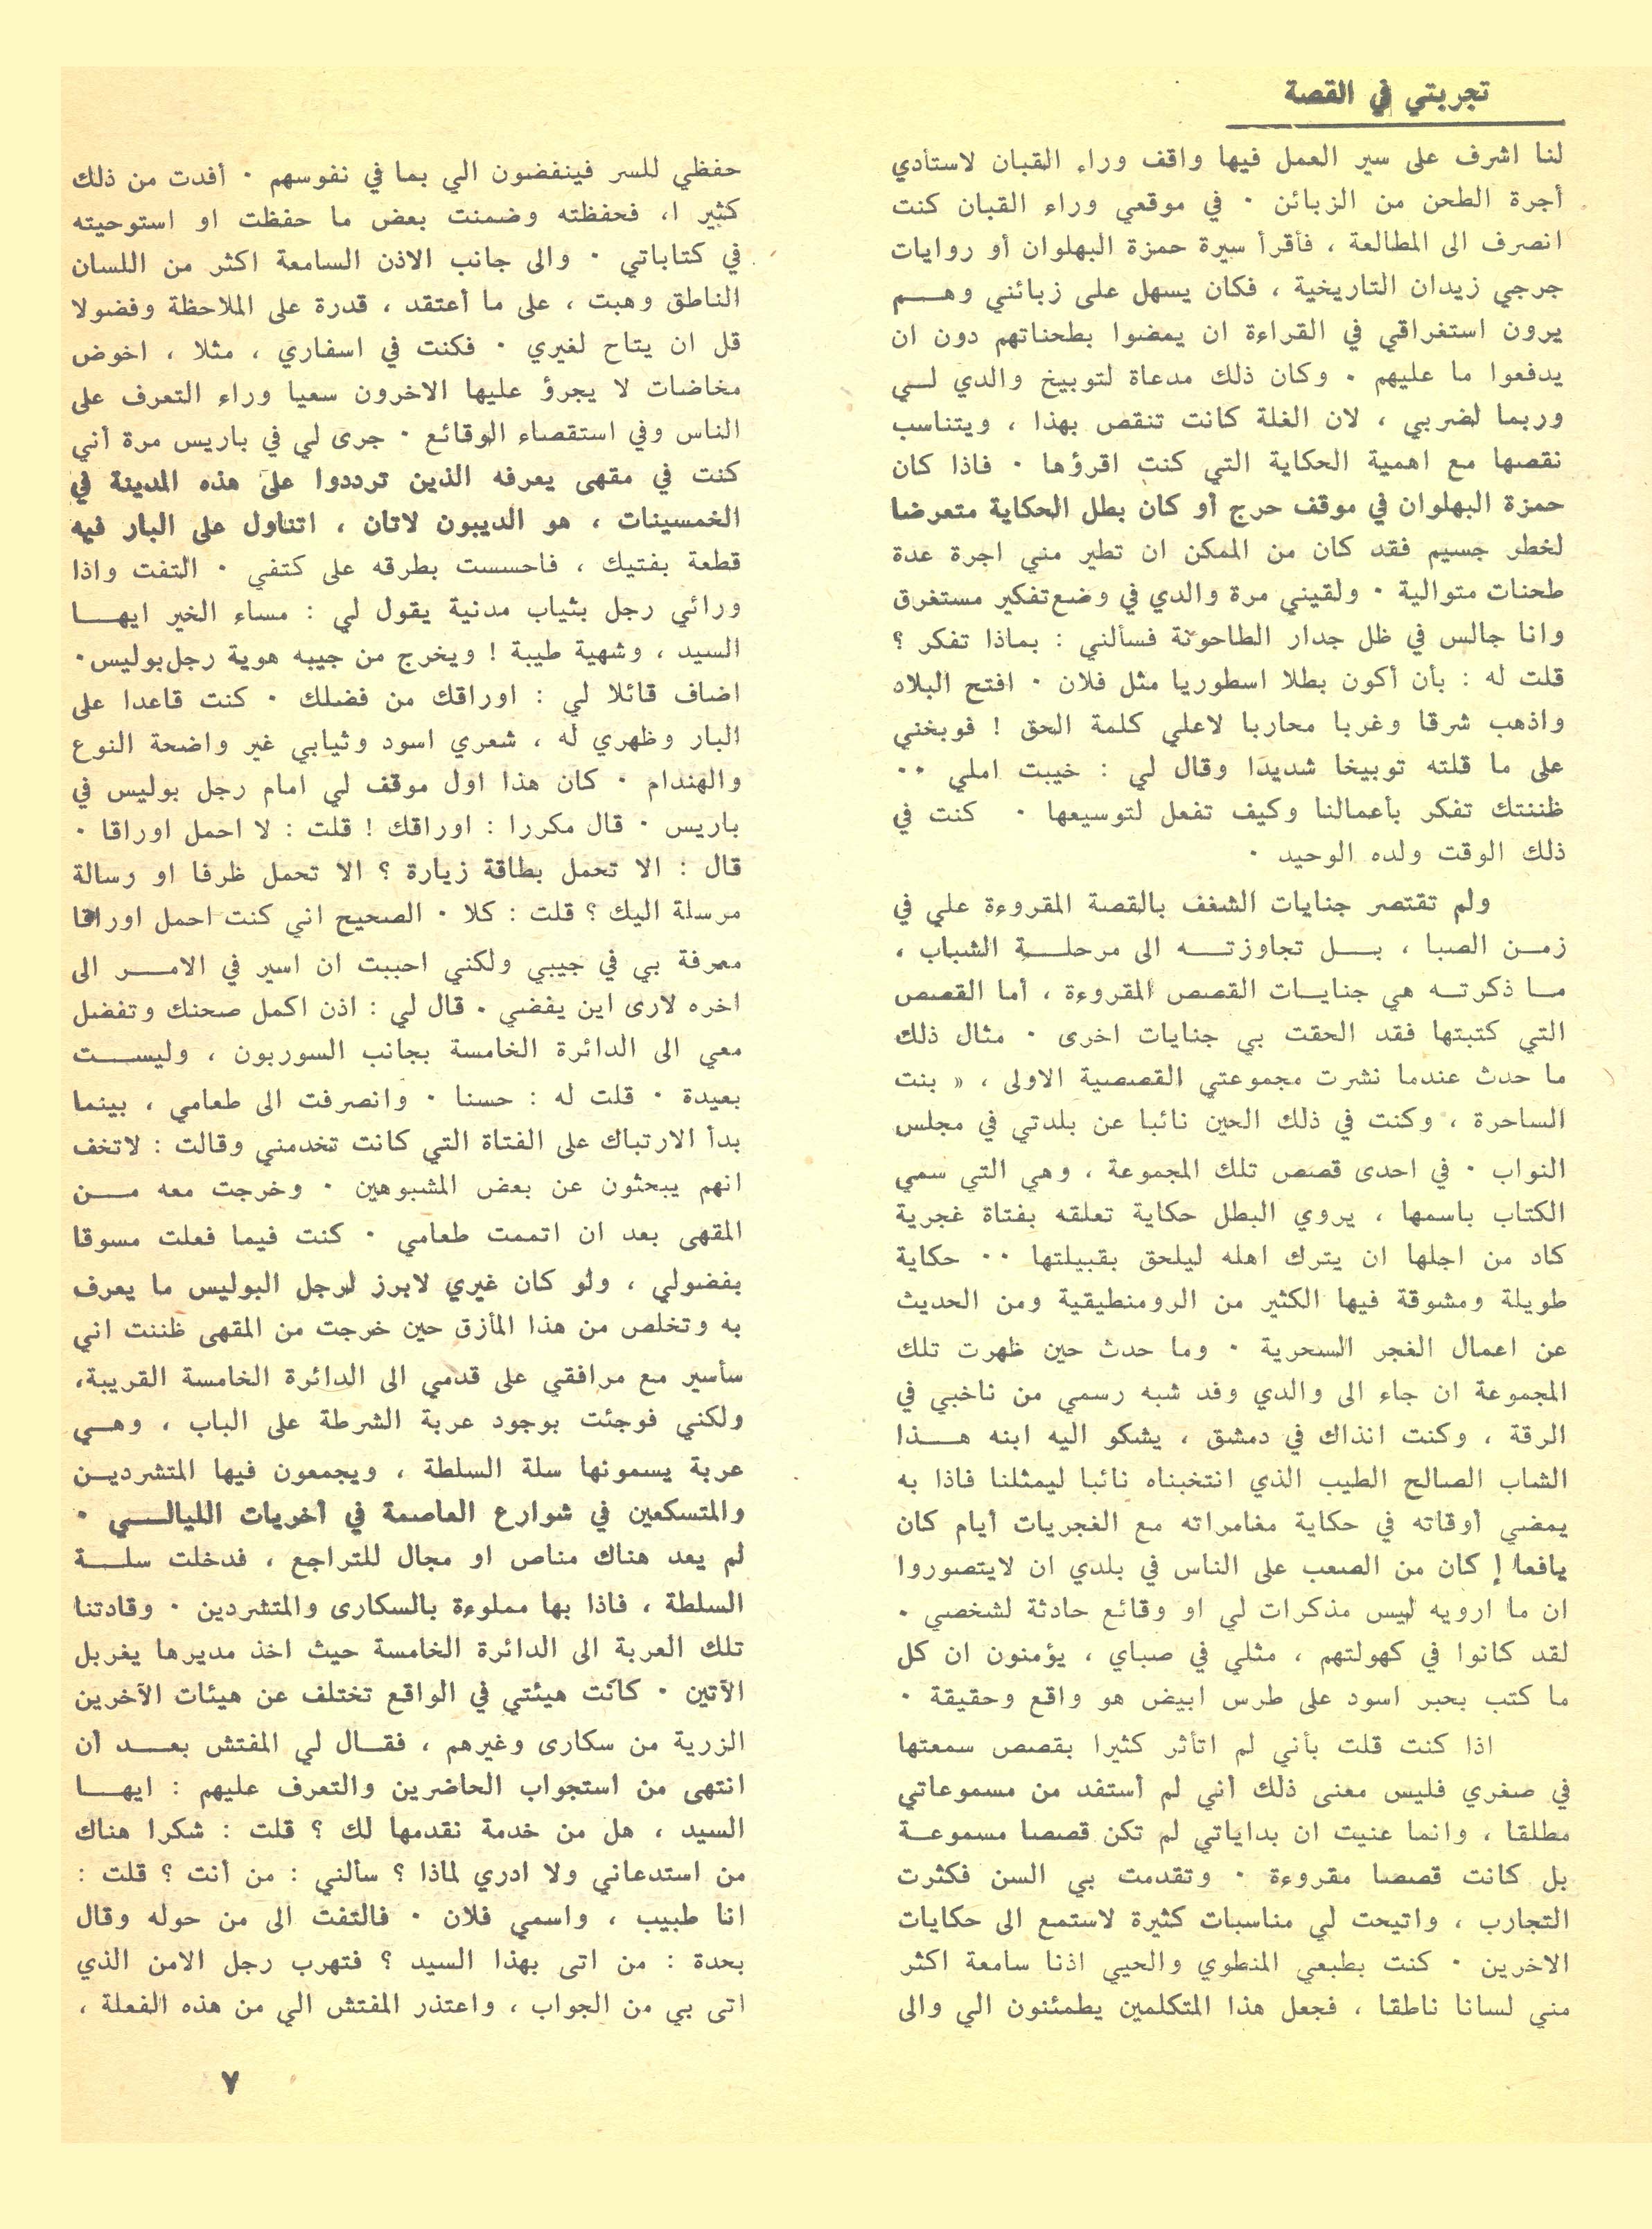 تجربتي في القصة
لنا اشرف على سير العمل فيها واقف وراء القبان لاستأدي
أجرة الطحن من الزبائن ٠ في موقعي وراء القبان كنت
انصرف الى المطالعة ، فأقرأ سيرة حمزة البهلوان أو روايات
جرجي زيدان التاريخية ، فكان يسهل على زبائني وهــم
يرون استغراقي في القراءة ان يمضوا بطحناتهم دون ان
يدفعوا ما عليهم ٠ وكان ذلك مدعاة لتوبيخ والدي لــي
وربما لضربي ، لان الغلة كانت تنقص بهذا ، ويتناسب
نقصها مع اهمية الحكاية التي كنت اقرؤها ٠ فاذا كان
حمزة البهلوان في موقف حرج أو كان بطل الحكاية متعرضا
لخطر جسيم فقد كان من الممكن ان تطير مني اجرة عدة
طحنات متوالية ٠ ولقيني مرة والدي في وضع تفكير مستغرق
وانا جالس في ظل جدار الطاحونة فسألني : بماذا تفكر ؟
قلت له : بأن أكون بطلا اسطوريا مثل فلان ٠ افتح البلاد
واذهب شرقا وغربا محاربا لاعلي كلمة الحق ! فوبخني
على ما قلته توبيخا شديدا وقال لي : خيبت املي ٠٠
ظننتك تفكر بأعمالنا وكيف تفعل لتوسيعها ٠ كنت في
ذلك الوقت ولده الوحيد ٠
ولم تقتصر جنايات الشغف بالقصة المقروءة علي في
زمــن الصبا ، بــل تجاوزتــه الى مرحلــة الشباب ،
مــا ذكرتــه هي جنايــات القصص المقروءة ، أما القصص
التي كتبتها فقد الحقت بي جنايات اخرى ٠ مثال ذلك
ما حدث عندما نشرت مجموعتي القصصية الاولى ، « بنت
الساحرة ، وكنت في ذلك الحين نائبا عن بلدتي في مجلس
النواب ٠ في احدى قصص تلك المجموعة ، وهي التي سمي
الكتاب باسمها ، يروي البطل حكاية تعلقه بفتاة غجرية
كاد من اجلها ان يترك اهله ليلحق بقبيلتها ٠٠ حكاية
طويلة ومشوقة فيها الكثير من الرومنطيقية ومن الحديث
عن اعمال الغجر السحرية ٠ وما حدث حين ظهرت تلك
المجموعة ان جاء الى والدي وفد شبه رسمي من ناخبي في
الرقة ، وكنت انذاك في دمشق ، يشكو اليه ابنه هــذا
الشاب الصالح الطيب الذي انتخبناه نائبا ليمثلنا فاذا به
يمضي أوقاته في حكاية مغامراته مع الغجريات أيام كان
يافعا ! كان من الصعب على الناس في بلدي ان لايتصوروا
ان ما ارويه ليس مذكرات لي او وقائع حادثة لشخصي ٠
لقد كانوا في كهولتهم ، مثلي في صباي ، يؤمنون ان كل
ما كتب بحبر اسود على طرس ابيض هو واقع وحقيقة ٠
اذا كنت قلت بأني لم اتأثر كثيرا بقصص سمعتها
في صغري فليس معنى ذلك أني لم أستفد من مسموعاتي
مطلقا ، وانما عنيت ان بداياتي لم تكن قصصا مسموعــة
بل كانت قصصا مقروءة ٠ وتقدمت بي السن فكثرت
التجارب ، واتيحت لي مناسبات كثيرة لاستمع الى حكايات
الاخرين ٠ كنت بطبعي المنطوي والحيي اذنا سامعة اكثر
مني لسانا ناطقا ، فجعل هذا المتكلمين يطمئنون الي والى
حفظي للسر فينفضون الي بما في نفوسهم ٠ أفدت من ذلك
كثير ا، فحفظته وضمنت بعض ما حفظت او استوحيته
في كتاباتي ٠ والى جانب الاذن السامعة اكثر من اللسان
الناطق وهبت ، على ما أعتقد ، قدرة على الملاحظة وفضولا
قل ان يتاح لغيري ٠ فكنت في اسفاري ، مثلا ، اخوض
مخاضات لا يجرؤ عليها الاخرون سعيا وراء التعرف على
الناس وفي استقصاء الوقائع ٠ جرى لي في باريس مرة أني
كنت في مقهى يعرفه الذين ترددوا على هذه المدينة في
الخمسينات ، هو الديبون لاتان ، اتناول على البار فيه
قطعة بفتيك ، فاحسست بطرقه على كتفي ٠ التفت واذا
ورائي رجل بثياب مدنية يقول لي : مساء الخير ايهــا
السيد ، وشهية طيبة ! ويخرج من جيبه هوية رجل بوليس٠
اضاف قائلا لي : اوراقك من فضلك ٠ كنت قاعدا على
البار وظهري له ، شعري اسود وثيابي غير واضحة النوع
والهندام ٠ كان هذا اول موقف لي امام رجل بوليس في
باريس ٠ قال مكررا : اوراقك ! قلت : لا احمل اوراقا ٠
قال : الا تحمل بطاقة زيارة ؟ الا تحمل ظرفا او رسالة
مرسلة اليك ؟ قلت : كلا ٠ الصحيح اني كنت احمل اوراقا
معرفة بي في جيبي ولكني احببت ان اسير في الامــر الى
اخره لارى اين يفضي ٠ قال لي : اذن اكمل صحنك وتفضل
معي الى الدائرة الخامسة بجانب السوربون ، وليســت
بعيدة ٠ قلت له : حسنا ٠ وانصرفت الى طعامي ، بينما
بدأ الارتباك على الفتاة التي كانت تخدمني وقالت : لاتخف
انهم يبحثون عن بعض المشبوهين ٠ وخرجت معه مــن
المقهى بعد ان اتممت طعامي ٠ كنت فيما فعلت مسوقا
بفضولي ، ولو كان غيري لابرز لرجل البوليس ما يعرف
به وتخلص من هذا المأزق حين خرجت من المقهى ظننت اني
سأسير مع مرافقي على قدمي الى الدائرة الخامسة القريبة،
ولكني فوجئت بوجود عربة الشرطة على الباب ، وهــي
عربة يسمونها سلة السلطة ، ويجمعون فيها المتشرديــن
والمتسكعين في شوارع العاصمة في أخريات الليالــي ٠
لم يعد هناك مناص او مجال للتراجع ، فدخلت سلــة
السلطة ، فاذا بها مملوءة بالسكارى والمتشردين ٠ وقادتنا
تلك العربة الى الدائرة الخامسة حيث اخذ مديرها يغربل
الآتين ٠ كانت هيئتي في الواقع تختلف عن هيئات الآخرين
الزرية من سكارى وغيرهم ، فقــال لي المفتش بعــد أن
انتهى من استجواب الحاضرين والتعرف عليهم : ايهــا
السيد ، هل من خدمة نقدمها لك ؟ قلت : شكرا هناك
من استدعاني ولا ادري لماذا ؟ سألني : من أنت ؟ قلت :
انا طبيب ، واسمي فلان ٠ فالتفت الى من حوله وقال
بحدة : من اتى بهذا السيد ؟ فتهرب رجل الامن الذي
اتى بي من الجواب ، واعتذر المفتش الي من هذه الفعلة ،
٧